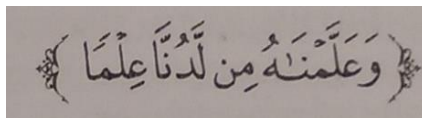 ﴿وَعَلَّمْنَٰهُ مِن لَّدُنَّا عِلْمًا﴾